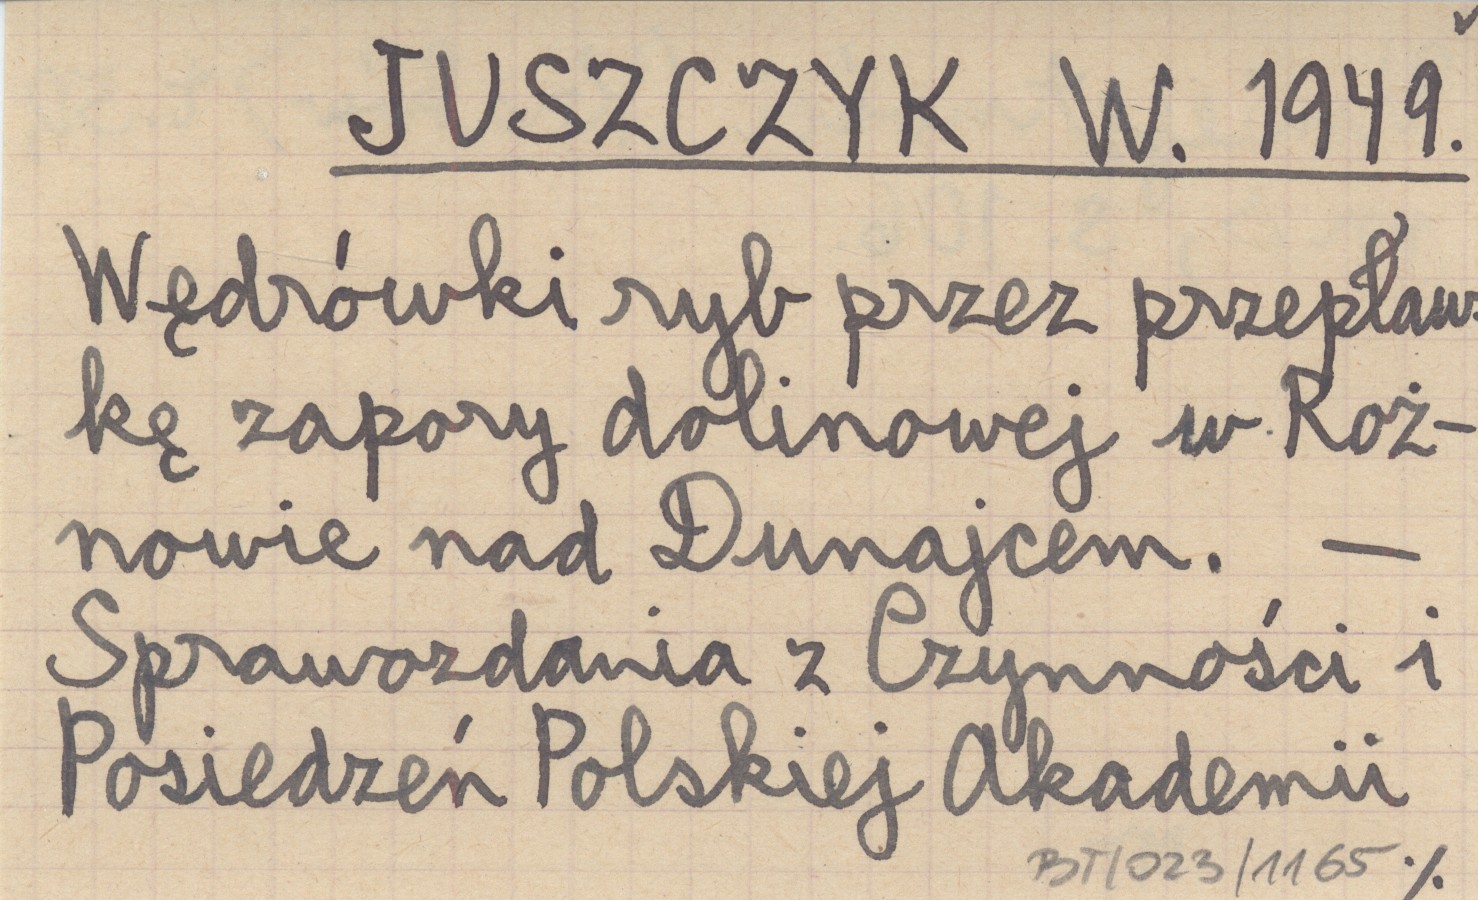 JUSZCZYK W. 1949.
Wędrówki ryb przez przepław-
kę zapory dolinowej w Roż-
nowie nad Dunajcem. —
Sprawozdania z Czynności i
Posiedzeń Polskiej Akademii
BT/023/1165 ./.